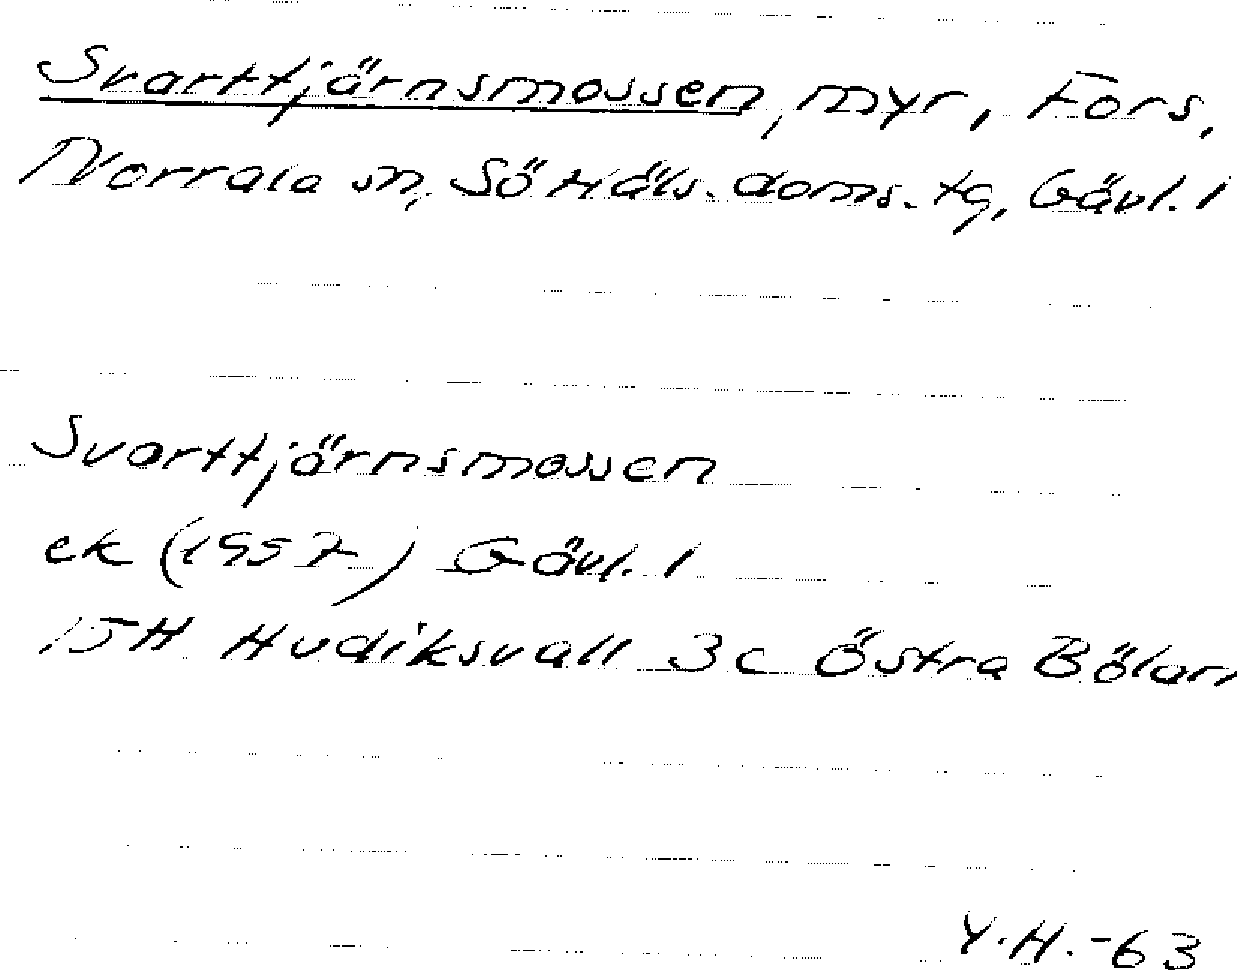 Svarttjärnsmossen, myr, Fors,
Norrala sn, Sö Häls. doms. tg, Gävl. l
Svarttjärnsmossen
ek (1957) Gävl. l
15H Hudiksvall 3c Östra Bölan
Y.H.-63